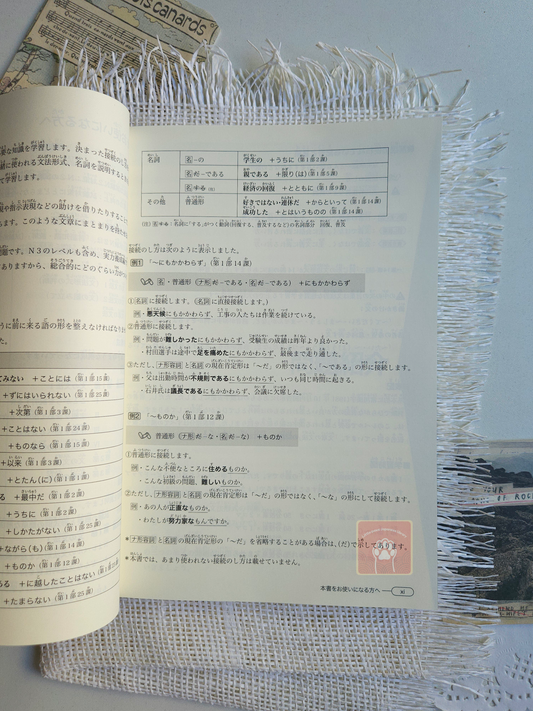 is canards
な知識を学習します。決まった接続の
に使われる文法形式、名詞を説明すると
で学習します。
や指示表現などの助けを借りたりすること
ます。このような文章にまとまりを
題です。N3のレベルも含め、実力
ありますから、総合的にどのぐらい
うに前に来る語の形を整えなければなり
た。
てみない +ことには(第1部15課)
+ずにはいられない(第1部25課)
+次第(第1部3課)
+ことはない(第1部24課)
+ものなら(第1部15課)
+以来(第1部3課)
+とたん(に)(第1部1課)
る +最中だ(第1部2課)
+うちに(第1部2課)
+しかたがない(第1部25課)
+ながら(も)(第1部14課)
+ものか(第1部12課)
ある +に越したことはない
+たまらない(第1部25課)
名詞 名-の 学生の +うちに(第1部2課)
名だ-である 親である +限り(は)(第1部5課)
名する 経済の回復 +とともに(第1部9課)
その他 普通形 好きではない・連休だ +からといって(第1部14課)
成功した +とはいうものの(第1部14課)
接続のし方は次のように表示しました。
例1 「〜にもかかわらず」(第1部14課)
名・普通形(ナ形だ-である・名だ-である) +にもかかわらず
①名詞に接続します。(名詞に直接接続します。)
例・悪天候にもかかわらず、工事の人たちは作業を続けている。
②普通形に接続します。
例・問題が難しかったにもかかわらず、受験生の成績は昨年より良かった。
・村田選手は途中で足を痛めたにもかかわらず、最後まで走り通した。
③ただし、ナ形容詞と名詞の現在肯定形は「〜だ」の形ではなく、「〜である」の形に接続します。
例・父は出勤時間が不規則であるにもかかわらず、いつも同じ時間に起きる。
・石井氏は議長であるにもかかわらず、会議に欠席した。
例2 「〜ものか」(第1部12課)
普通形(ナ形だ-な・名だ-な) +ものか
①普通形に接続します。
例・こんな不便なところに住めるものか。
・こんな初級の問題、難しいものか。
②ただし、ナ形容詞と名詞の現在肯定形は「〜だ」の形ではなく、「〜な」の形にして接続します。
例・あの人が正直なものか。
・わたしが努力家なもんですか。
*ナ形容詞と名詞の現在肯定形の「〜だ」を省略することがある場合は、(だ)で示してあります。
*本書では、あまり使われない接続のし方は載せていません。
本書をお使いになる方へ xi